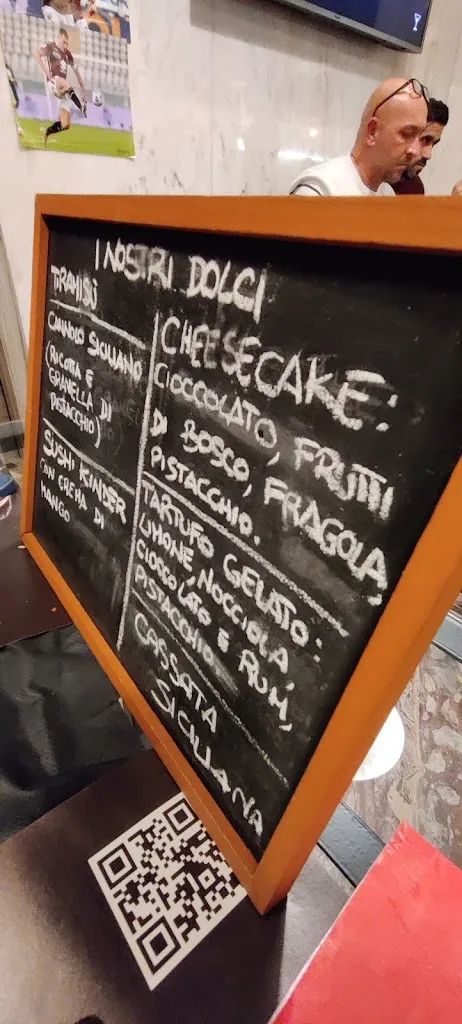 I NOSTRI DOLCI
TIRAMISÙ
CANNOLO SICILIANO
(RICOTTA E
GRANELLA DI
PISTACCHIO)
SUSHI KINDER
CON CREMA DI
MANGO
CHEESECAKE:
CIOCCOLATO, FRUTTI
DI BOSCO, FRAGOLA,
PISTACCHIO.
TARTUFO GELATO:
LIMONE, NOCCIOLA,
CIOCCOLATO E RUM,
PISTACCHIO
CASSATA
SICILIANA